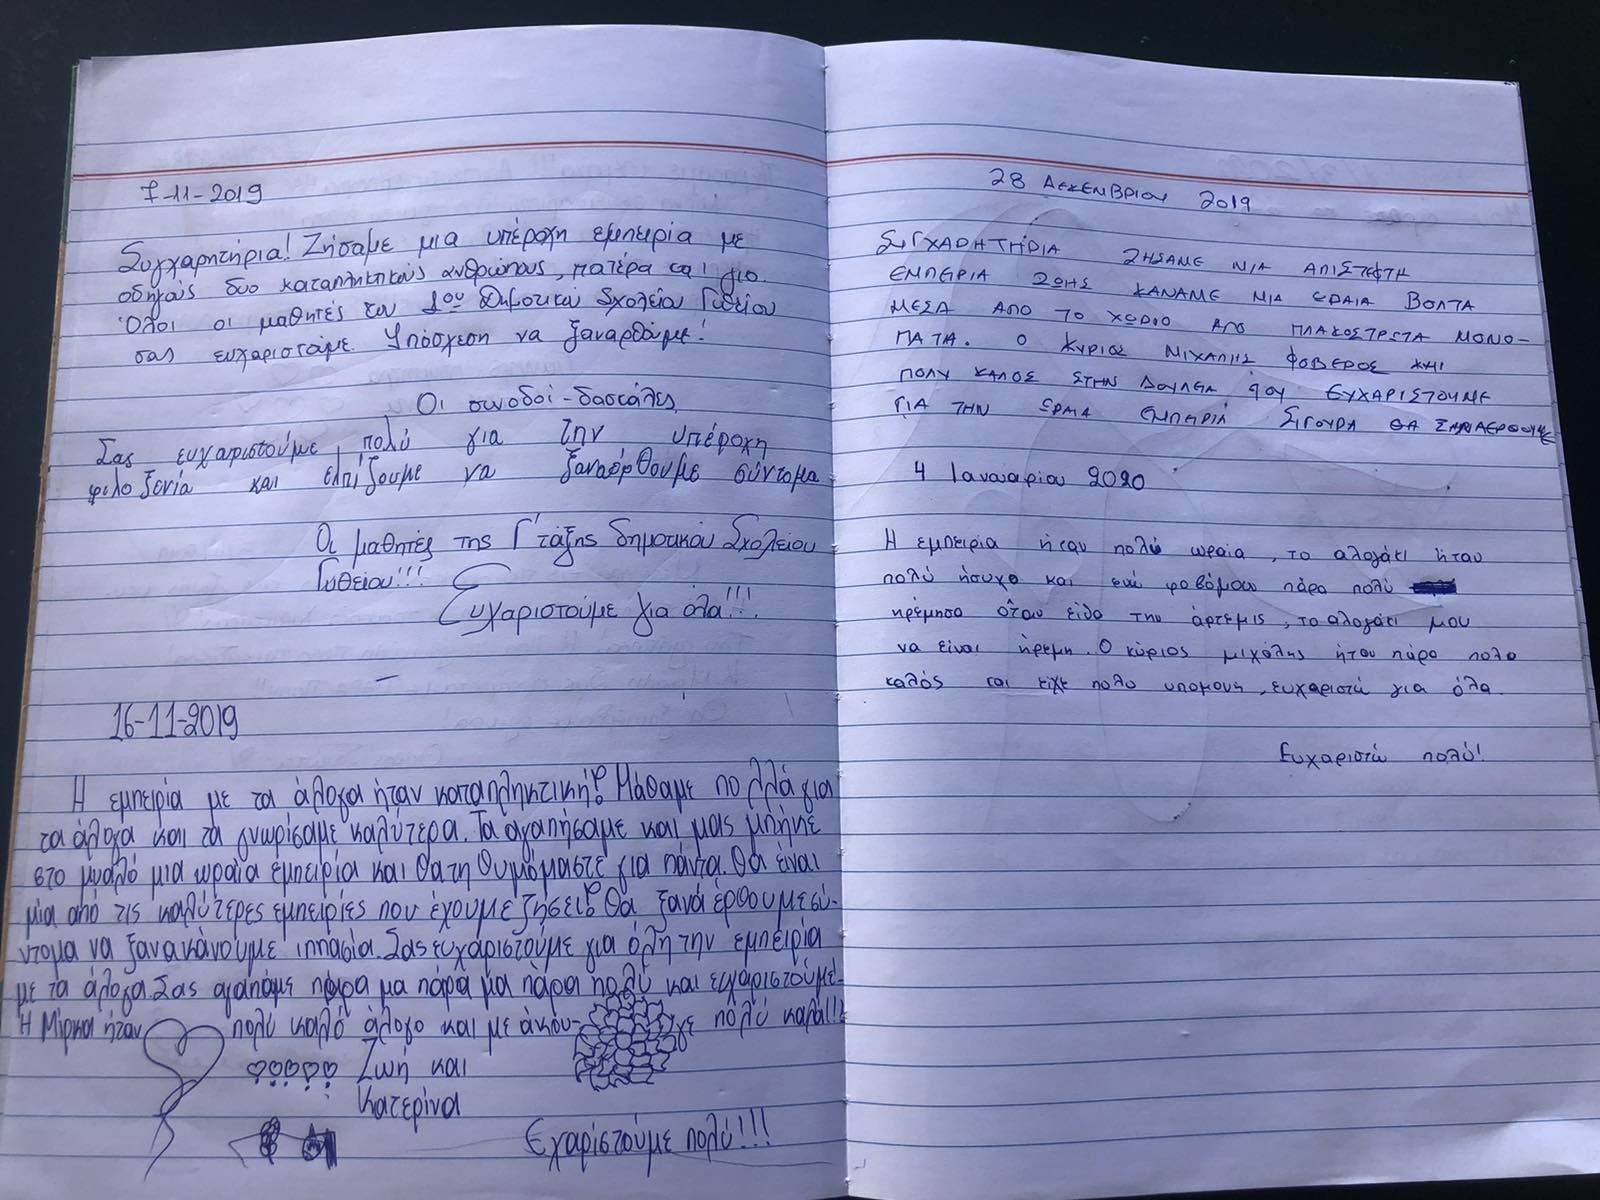 7-11-2019
Συγχαρητήρια! Ζήσαμε μια υπέροχη εμπειρία με
οδηγούς δυο καταπληκτικούς ανθρώπους, πατέρα και γιο.
Όλοι οι μαθητές του 1ου Δημοτικού Σχολείου Γυθείου
σας ευχαριστάμε. Υπόσχεση να ξαναρθούμε!
Οι συνοδοί-δασκάλες
Σας ευχαριστούμε πολύ για την υπέροχη
φιλοξενία και ελπίζουμε να ξαναέρθουμε σύντομα
Οι μαθητές της Γ' τάξης δημοτικού Σχολείου
Γυθείου!!!
Ευχαριστούμε για όλα!!!
16-11-2019
Η εμπειρία με τα άλογα ήταν καταπληκτική! Μάθαμε πολλά για
τα άλογα και τα γνωρίσαμε καλύτερα. Τα αγαπήσαμε και μας μπήκε
στο μυαλό μια ωραία εμπειρία και θα τη θυμόμαστε για πάντα. Θα είναι
μία από τις καλύτερες εμπειρίες που έχουμε ζήσει! Θα ξανά έρθουμε σύ-
ντομα να ξανακάνουμε ιππασία. Σας ευχαριστούμε για όλη την εμπειρία
με τα άλογα. Σας αγαπάμε πάρα μα πάρα μα πάρα πολύ και ευχαριστούμε!
Η Μίρκα ήταν πολύ καλό άλογο και με άκου- γε πολύ καλά!!!
Ζωή και
Κατερίνα
Εχαριστούμε πολύ!!!
28 ΔΕΚΕΜΒΡΙΟΥ 2019
ΣΙΓΧΑΡΗΤΗΡΙΑ ΖΗΣΑΜΕ ΜΙΑ ΑΠΙΣΤΕΦΤΗ
ΕΜΠΕΙΡΙΑ ΖΩΗΣ ΚΑΝΑΜΕ ΜΙΑ ΩΡΑΙΑ ΒΟΛΤΑ
ΜΕΣΑ ΑΠΟ ΤΟ ΧΩΡΙΟ ΑΠΟ ΠΛΑΚΟΣΤΡΩΤΑ ΜΟΝΟ-
ΠΑΤΑ. Ο ΚΥΡΙΟΣ ΜΙΧΑΛΗΣ ΦΟΒΕΡΟΣ ΚΑΙ
ΠΟΛΥ ΚΑΛΟΣ ΣΤΗΝ ΔΟΥΛΕΑ ΤΟΥ ΕΥΧΑΡΙΣΤΟΥΜΕ
ΓΙΑ ΤΗΝ ΩΡΑΙΑ ΕΜΠΕΙΡΙΑ ΣΙΓΟΥΡΑ ΘΑ
4 Ιανουαρίου 2020
Η εμπειρία ήταν πολύ ωραία, το αλογάκι ήταν
πολύ ήσυχο και ενώ φοβόμουν πάρα πολύ
ηρέμησα όταν είδα την άρτεμις, το αλογάκι μου
να είναι ήρεμη. Ο κύριος μιχάλης ήταν πάρα πολυ
καλός και είχε πολυ υπομονή, ευχαριστώ για όλα.
Ευχαριστώ πολύ!